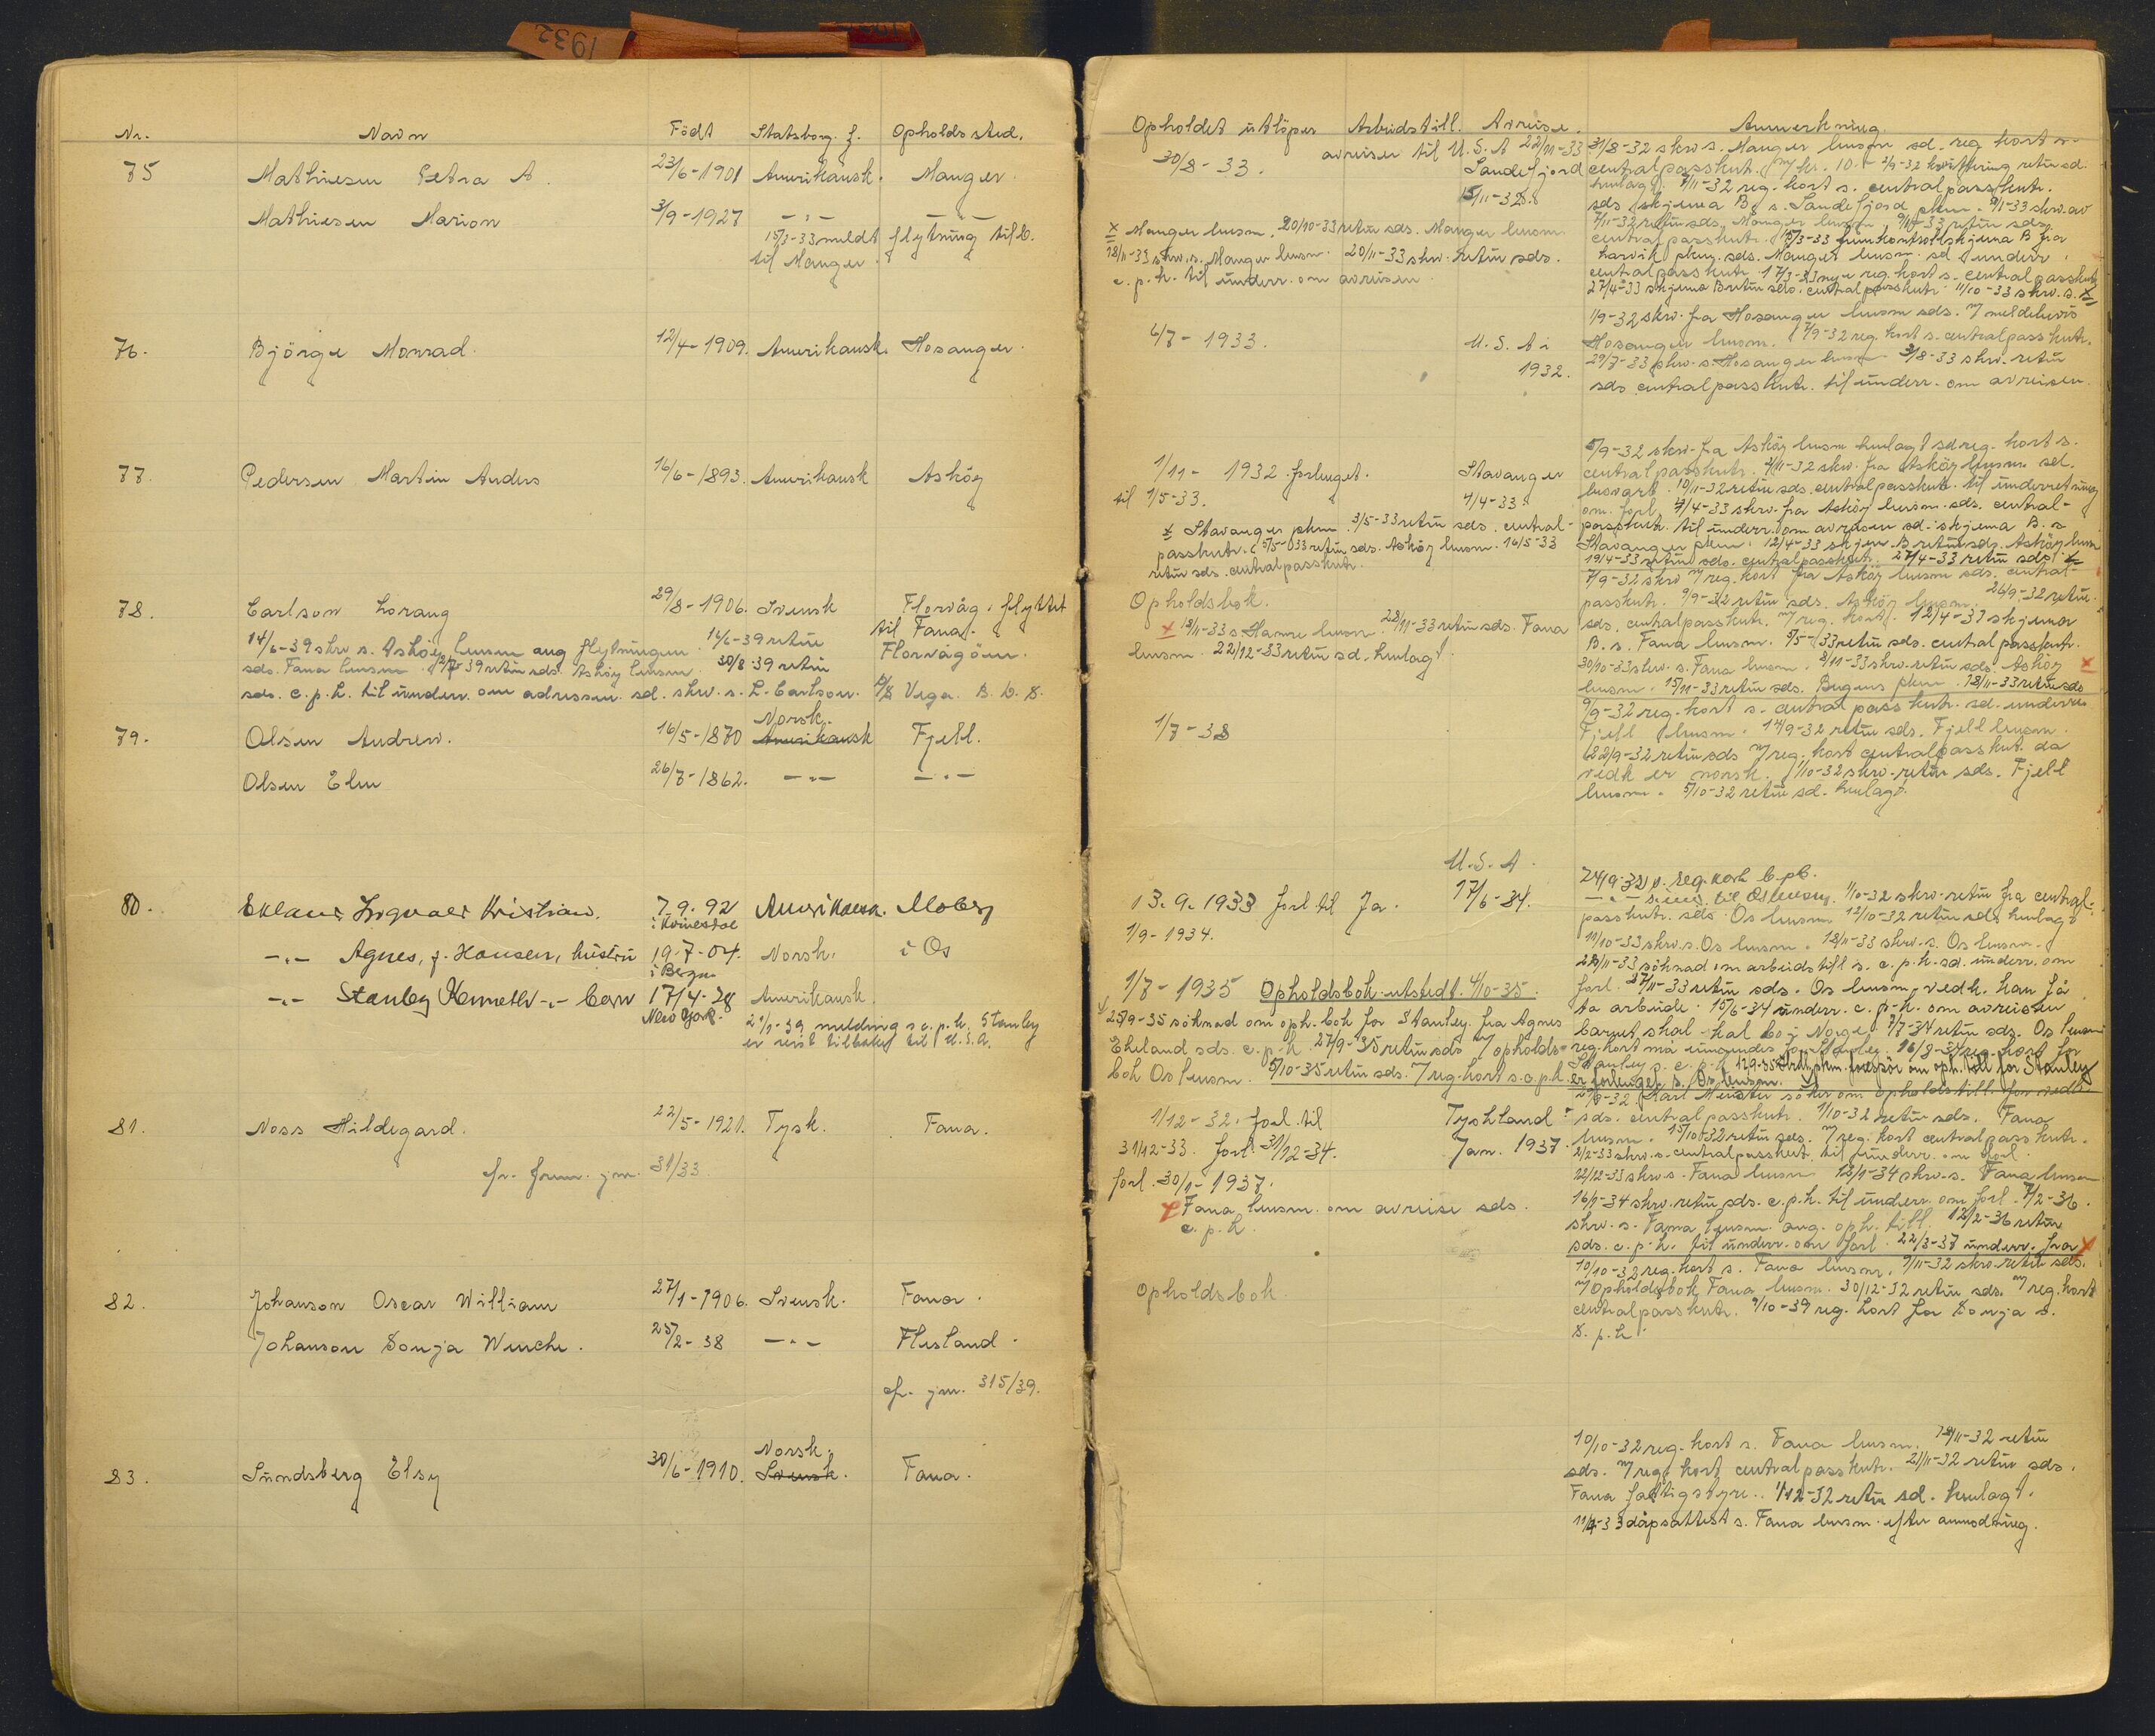 1932
Nr. Navn Født Statsborg. f. Opholdssted.
75 Mathiesen Petra A. 23/6-1901 Amerikansk. Manger.
Mathiesen Marion 3/9-1927 -"- -"-
15/3-33 meldt flytning tilb.
til Manger.
76. Björge Monrad. 12/4-1909. Amerikansk. Hosanger.
77. Pedersen Martin Anders 16/6-1893. Amerikansk Askøy
78. Carlson Lorang 29/8-1906. Svensk Florvåg. flyttet
til Fana.
14/6-39 skr. s. Askøy lensm. ang flytningen. 16/6-39 retur Florvågöen.
sds. Fana lensm. 12/7-39 retur sds. Askøy lensm. 30/8-39 retur
sds. c.p.k. til underr. om adressen sd. skr. s. L. Carlson. D/S Vega. B.D.S.
79. Olsen Andrew. 16/5-1870 Norsk. Amerikansk Fjell.
Olsen Elen 26/7-1862. -"- -"-
80. Ekland Ingvald Kristian. 7.9.92 Amerikansk. Moberg
i Kvinesdal
-"- Agnes, f. Hansen, hustru 19.7.04. Norsk. i Os
i Bergen
-"- Stanley Kenneth -"- barn 17/4-28 Amerikansk.
New York. 21/9-39 melding s c.p.k. Stanley
er reist tilbake til U.S.A.
81. Noss Hildegard. 22/5-1921. Tysk. Fana.
fr. frem. jnr. 31/33.
82. Johanson Oscar William 27/1-1906. Svensk. Fana.
Johanson Sonja Wenche. 25/2-38 -"- Flesland.
cfr. jnr. 315/39.
83. Sundsberg Elsy 30/6-1910. Norsk. Svensk. Fana.
Opholdet utløper Arbeidstill. Avreise. Anmerkning.
avreiser til U.S.A 22/11-33 31/8-32 skr. s. Manger lensm sd. reg. kort s.
30/8-33. Sandefjord centralpasskntr. m/ kr. 10.- 2/9-32 kvittering retur sd.
15/11-32. henlagt. 7/11-32 reg. kort s. centralpasskntr.
sds skjema B. s. Sandefjord pkm. 9/1-33 skr. av
7/11-32 retur sds. Manger lensm. 9/1-33 retur sds.
x Manger lensm. 20/10-33 retur sds. Manger lensm. centralpasskntr. 15/3-33 fremkontrollskjema B fra
28/11-33 skr. s. Manger lensm. 20/11-33 skr. retur sds. Larvik pkm. sds. Manger lensm. sd underr.
c.p.k. til underr. om avreisen. centralpasskntr. 17/3-33 nye reg. kort s. centralpasskntr
27/4-33 skjema B retur sds. centralpasskntr. 11/10-33 skr. s. x
1/9-32 skr. fra Hosanger lensm sds. m/ meldebevis
6/7-1933. U.S.A i Hosanger lensm. 7/9-32 reg. kort s. centralpasskntr.
1932. 29/7-33 skr. s. Hosanger lensm. 3/8-33 skr. retur
sds centralpasskntr. til underr. om avreisen.
5/9-32 skr. fra Askøy lensm henlagt sd reg. kort s.
1/11-1932 forlenget. Stavanger centralpasskntr. 2/11-32 skr. fra Askøy lensm. sd.
til 1/5-33. 4/4-33. besvart. 10/11-32 retur sds. centralpasskntr. til underretning
om forl. 7/4-33 skr. fra Askøy lensm. sds. central-
x Stavanger pkm. 3/5-33 retur sds. central- passkntr. til underr. om avreisen sd. skjema B. s.
passkntr. 5/5-33 retur sds. Askøy lensm. 16/5-33 Stavanger pkm. 12/4-33 skjem. B retur sds. Askøy lensm
retur sds. centralpasskntr. 19/4-33 retur sds. centralpasskntr. 27/4-33 retur sds. x
7/9-32 skr m/ reg. kort fra Askøy lensm sds. central-
Opholdsbok. passkntr. 9/9-32 retur sds. Askøy lensm. 26/9-32 retur.
x 18/11-33 s. Hamre lensm. 28/11-33 retur sds. Fana sds. centralpasskntr. m/ reg. kort. 12/4-33 skjema
lensm. 22/12-33 retur sd. henlagt. B. s. Fana lensm. 5/5-33 retur sds. centralpasskntr.
30/10-33 skr. s. Fana lensm. 8/11-33 skr. retur sds. Askøy x
lensm. 15/11-33 retur sds. Bergens pkm. 18/11-33 retur sds
9/9-32 reg. kort s. centralpasskntr. sd. underr.
1/7-33 Fjell lensm. 14/9-32 retur sds. Fjell lensm.
22/9-32 retur sds m/ reg. kort centralpasskntr. da
vedk er norsk. 1/10-32 skr. retur sds. Fjell
lensm. 5/10-32 retur sd. henlagt.
U.S.A. 24/9-32 s. reg. kort c.pk.
13.9.1933 forl til Ja. 17/6-34. 1/10-32 skr. retur fra central-
1/9-1934. passkntr. sds. Os lensm 12/10-32 retur sds henlagt
11/10-33 skr. s. Os lensm. 18/11-33 skr. s. Os lensm.
28/11-33 søknad om arbeidstill s. c.p.k. sd. underr. om
1/7-1935 Opholdsbok utstedt. 4/10-35. forl. 27/11-33 retur sds. Os lensm, vedk. kan få
25/9-35 søknad om oph. bok for Stanley fra Agnes ta arbeide. 15/6-34 underr. c.p.k. om avreisen
Ekeland sds. c.p.k. 27/9-35 retur sds m/ opholds- barnet skal bo i Norge. 7/7-34 retur sds. Os lensm
bok Os lensm. 5/10-35 retur sds. m/ reg. kort s. c.p.k. reg. kort må innsendes for Stanley. 16/8-34 reg. kort for
Stanley s. c.p.k. forespør om oph. till for Stanley
er forlenget s. Os lensm.
27/9-32 Karl Meister søker om opholdstill. for vedk.
1/12-32. forl. til Tyskland sds. centralpasskntr. 1/10-32 retur sds. Fana
31/12-33. forl. 31/12-34. Jan. 1937. lensm. 15/10-32 retur sds. m/ reg. kort centralpasskntr.
2/2-33 skr. s. centralpasskntr. til underr. om forl.
forl. 30/1-1937. 22/12-33 skr s. Fana lensm 12/1-34 skr. s. Fana lensm
x Fana lensm. om avreise sds. 16/1-34 skr. retur sds. c.p.k. til underr. om forl. 7/2-36.
c.p.k. skr. s. Fana lensm. ang. oph. till. 12/2-36 retur
sds. c.p.k. til underr. om forl. 22/3-37 underr. fra x
10/10-32 reg. kort s. Fana lensm. 9/11-32 skr. retur sds.
Opholdsbok. m/ opholdsbok Fana lensm. 30/12-32 retur sds. m/ reg. kort
centralpasskntr. 9/10-39 reg. kort for Sonja s.
S.p.k.
10/10-32 reg. kort s. Fana lensm. 18/11-32 retur
sds. m/ reg. kort centralpasskntr. 21/11-32 retur sds.
Fana fattigstyre. 1/12-32 retur sd. henlagt.
11/4-33 dåpsattest s. Fana lensm. efter anmodning.